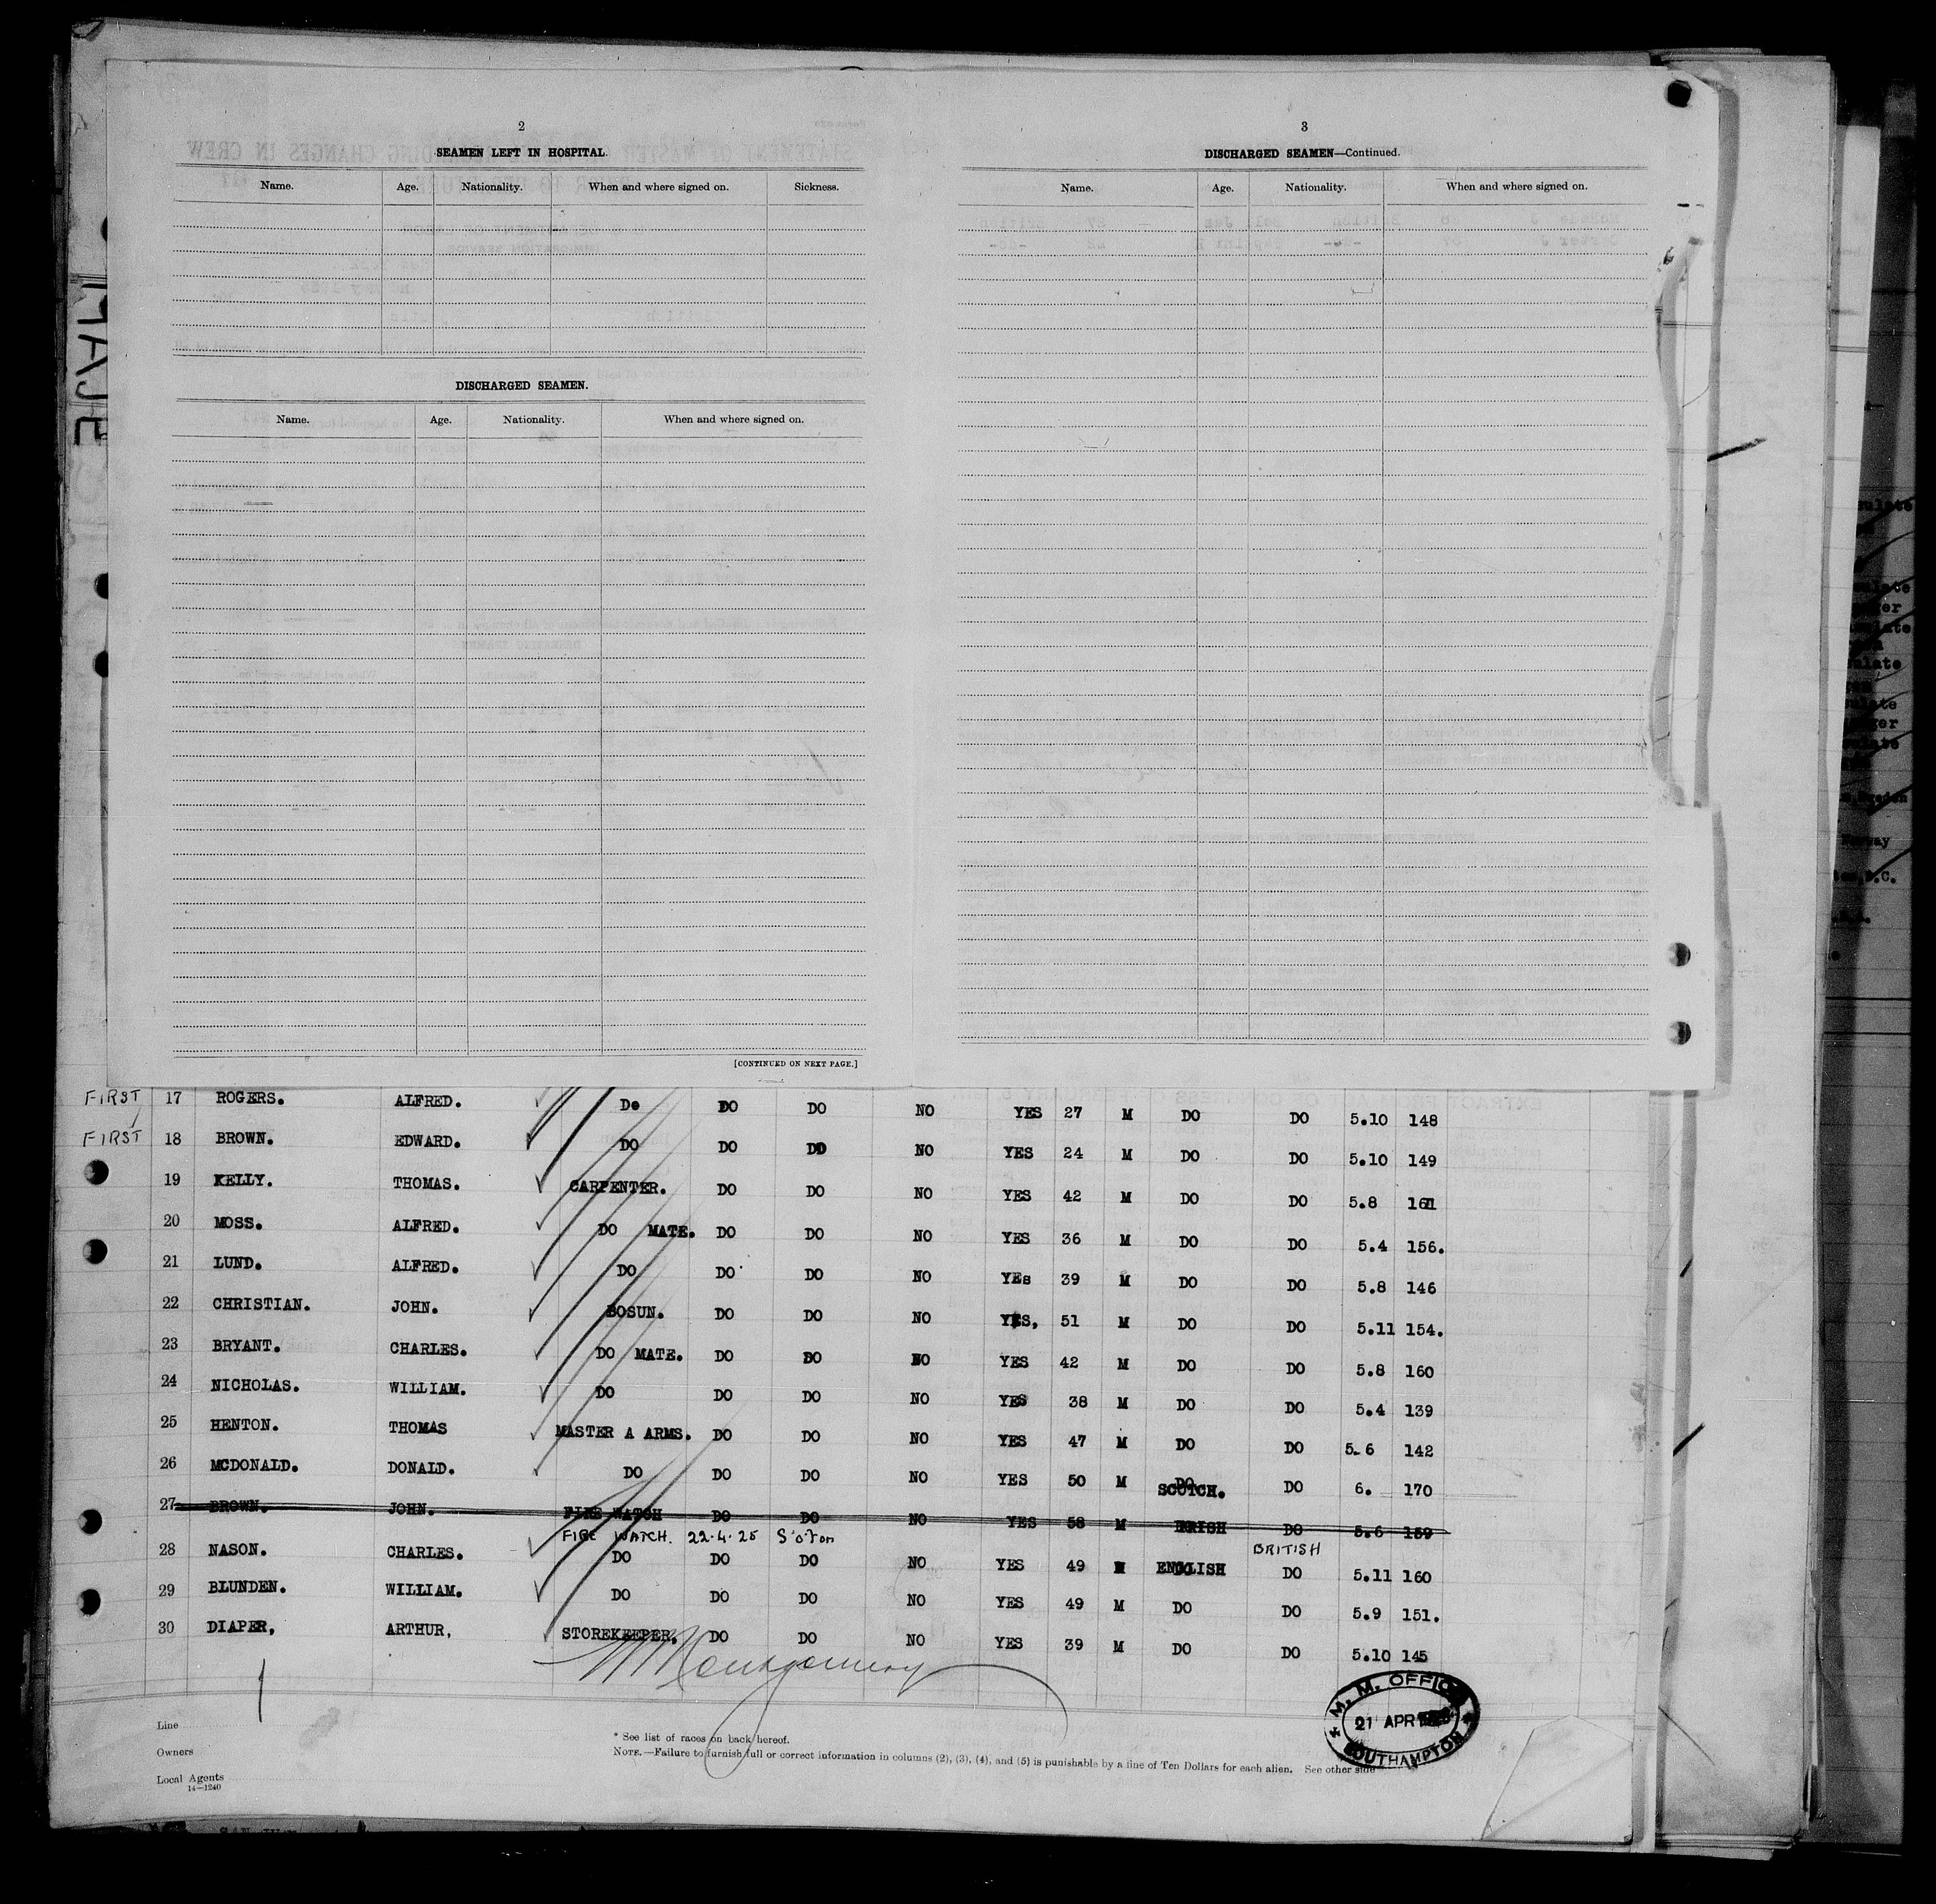 MAJE
2
SEAMEN LEFT IN HOSPITAL.
Name. Age. Nationality. When and where signed on. Sickness.
DISCHARGED SEAMEN.
Name. Age. Nationality. When and where signed on.
[CONTINUED ON NEXT PAGE.]
3
DISCHARGED SEAMEN—Continued.
Name. Age. Nationality. When and where signed on.
FIRST 17 ROGERS. ALFRED. Do DO DO NO YES 27 M DO DO 5.10 148
FIRST 18 BROWN. EDWARD. DO DO DO NO YES 24 M DO DO 5.10 149
19 KELLY. THOMAS. CARPENTER. DO DO NO YES 42 M DO DO 5.8 161
20 MOSS. ALFRED. DO MATE. DO DO NO YES 36 M DO DO 5.4 156.
21 LUND. ALFRED. DO DO DO NO YEs 39 M DO DO 5.8 146
22 CHRISTIAN. JOHN. BOSUN. DO DO NO YES, 51 M DO DO 5.11 154.
23 BRYANT. CHARLES. DO MATE. DO DO NO YES 42 M DO DO 5.8 160
24 NICHOLAS. WILLIAM. DO DO DO NO YES 38 M DO DO 5.4 139
25 HENTON. THOMAS MASTER A ARMS. DO DO NO YES 47 M DO DO 5.6 142
26 MCDONALD. DONALD. DO DO DO NO YES 50 M SCOTCH. DO 6. 170
27 BROWN. JOHN. FIRE WATCH DO DO NO YES 58 M IRISH DO 5.6 159
FIRE WATCH. 22.4.25 S'oTon BRITISH
28 NASON. CHARLES. DO DO DO NO YES 49 M ENGLISH DO 5.11 160
29 BLUNDEN. WILLIAM. DO DO DO NO YES 49 M DO DO 5.9 151.
30 DIAPER, ARTHUR, STOREKEEPER. DO DO NO YES 39 M DO DO 5.10 145
Montgomery
M. M. OFFICE
21 APR
SOUTHAMPTON
Line
Owners
Local Agents
14—1240
* See list of races on back hereof.
NOTE.—Failure to furnish full or correct information in columns (2), (3), (4), and (5) is punishable by a fine of Ten Dollars for each alien. See other side